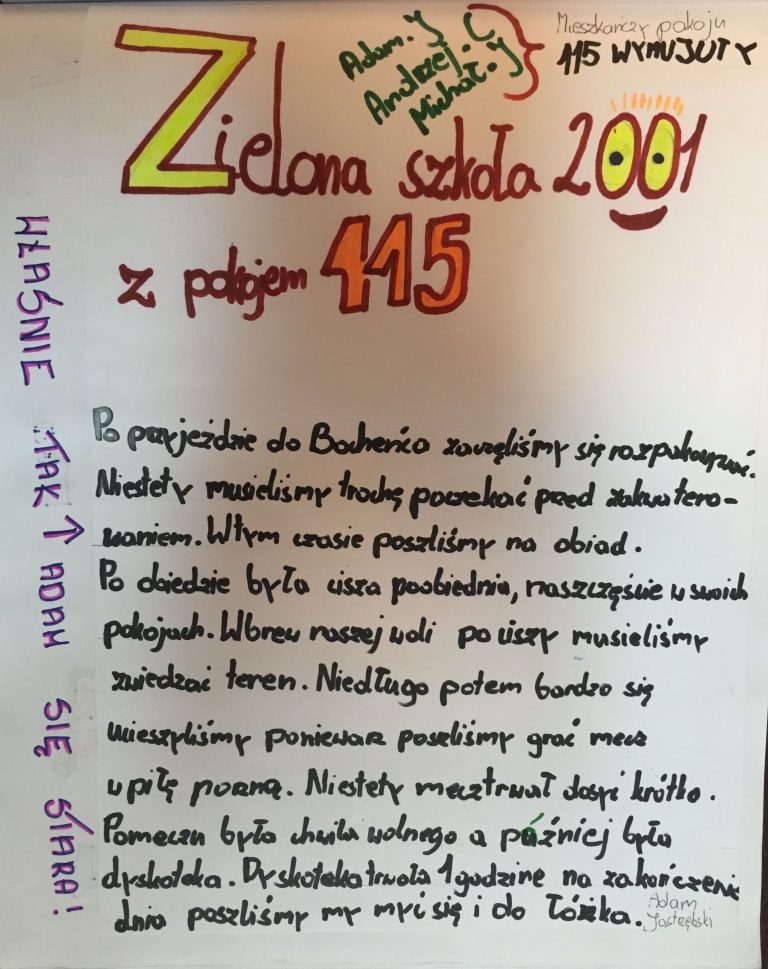 Adam. J
Andrzej. C
Michał. J
Mieszkańcy pokoju
115 WYMUJUTY
Zielona szkoła 2001
z pokojem 115
WŁAŚNIE TAK ↑ ADAM SIĘ SIARA!
Po przyjeździe do Bocheńca zaczęliśmy się rozpakowywać.
Niestety musieliśmy trochę poczekać przed zakwatero-
waniem. W tym czasie poszliśmy na obiad.
Po obiedzie była cisza poobiednia, naszczęście w swoich
pokojach. Wbrew naszej woli po ciszy musieliśmy
zwiedzać teren. Niedługo potem bardzo się
ucieszyliśmy poniewarz poszliśmy grać mecz
w piłę norzną. Niestety mecz trwał dosyć krótko.
Pomeczu była chwila wolnego a później była
dyskoteka. Dyskoteka trwała 1 godzinę na zakończenie
dnia poszliśmy my myć się i do łóżka.
Adam
Jastrzębski